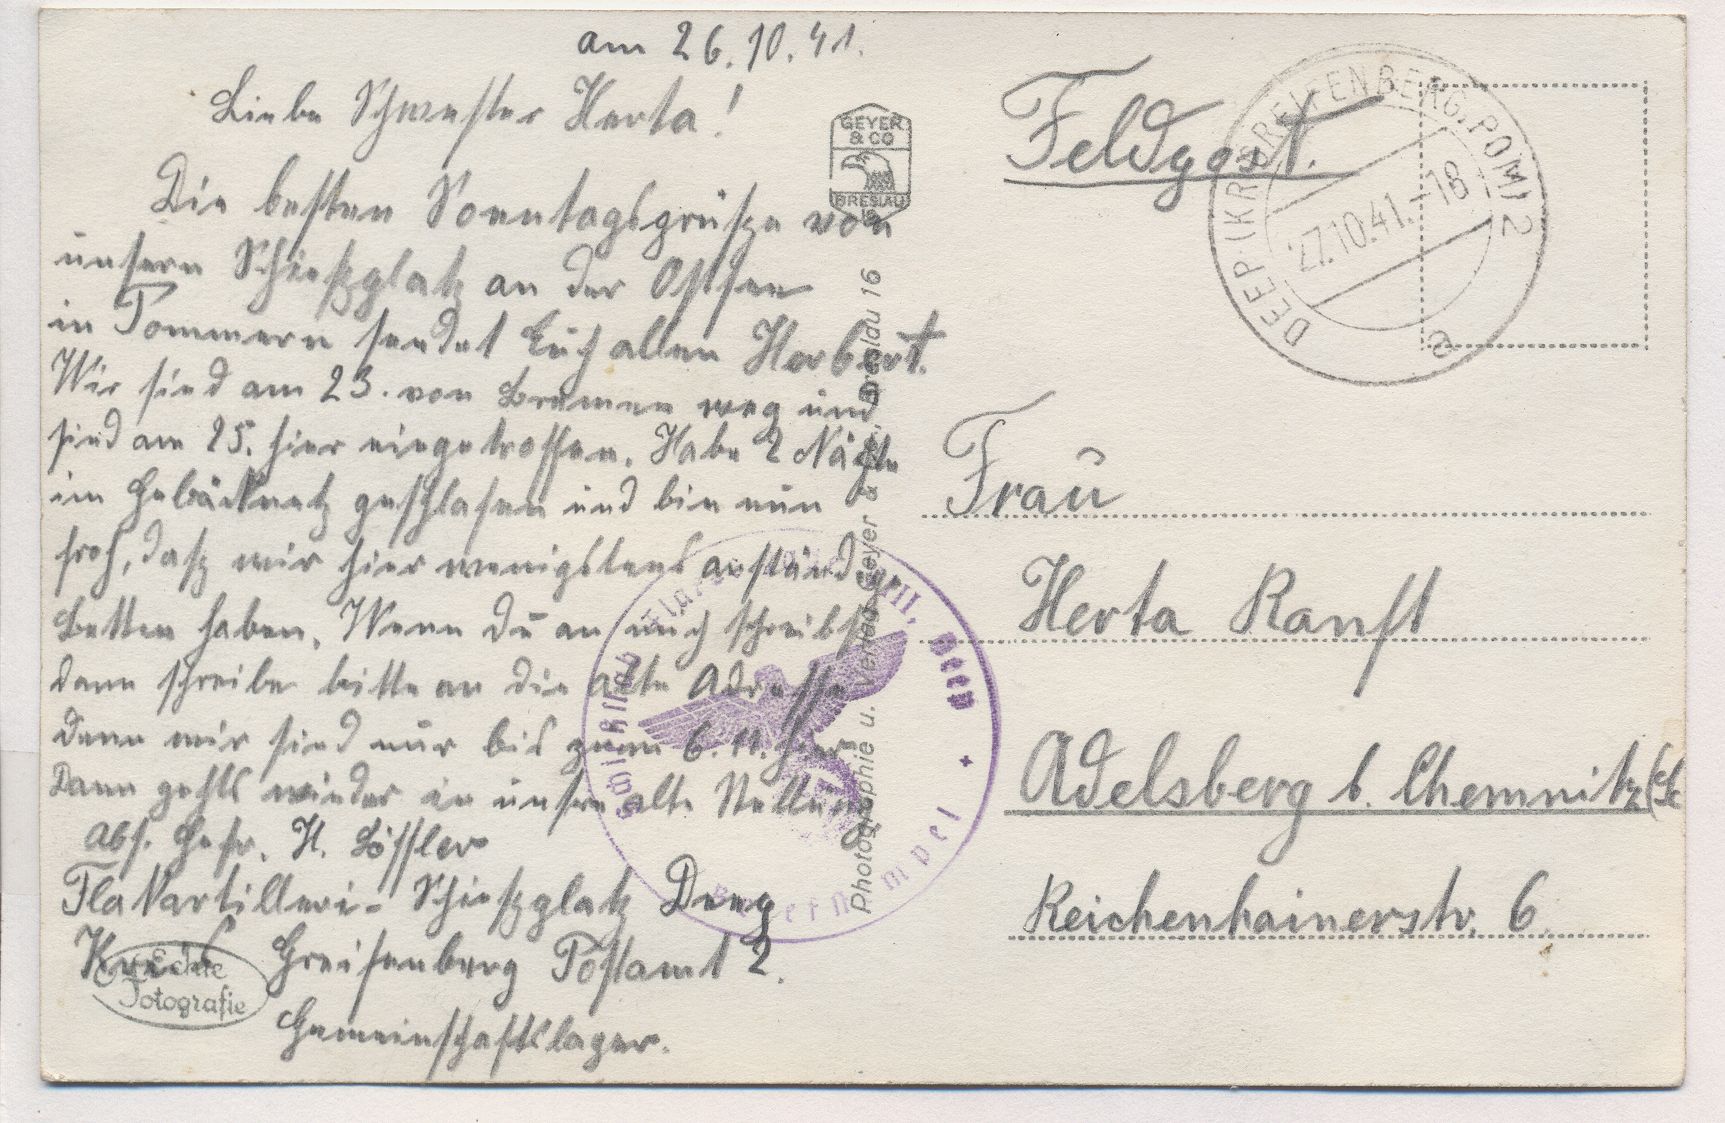 am 26.10.41.
Liebe Schwester Herta!
Die besten Sonntagsgrüsze von
unsern Schieszplatz an der Ostsee
in Pommern sendet Euch allen Herbert.
Wir sind am 23. von Bremen weg und
sind am 25. hier eingetroffen. Habe 2 Nächte
im Gebäcknetz geschlafen und bin nun
froh, dasz wir hier wenigstens anständige
Betten haben. Wenn du an mich schreibst
dann schreibe bitte an die alte Adresse
denn wir sind nur bis zum 6.11. hier
Dann gehts wieder in unsre alte Stellung
Abs. Gefr. H. Löffler
Flakartilleri- Schieszplatz Deep
Kreis Greifenberg Postamt 2.
Gemeinschaftslager.
Echte
Fotografie
GEYER
& CO
BRESLAU
16
Photographie u. Verlag Geyer & Co., Breslau 16
Feldpost.
DEEP (KR. GREIFENBERG, POM) 2
27.10.41.-18
a
Frau
Herta Ranft
Adelsberg b. Chemnitz
Reichenhainerstr. 6.
Deep